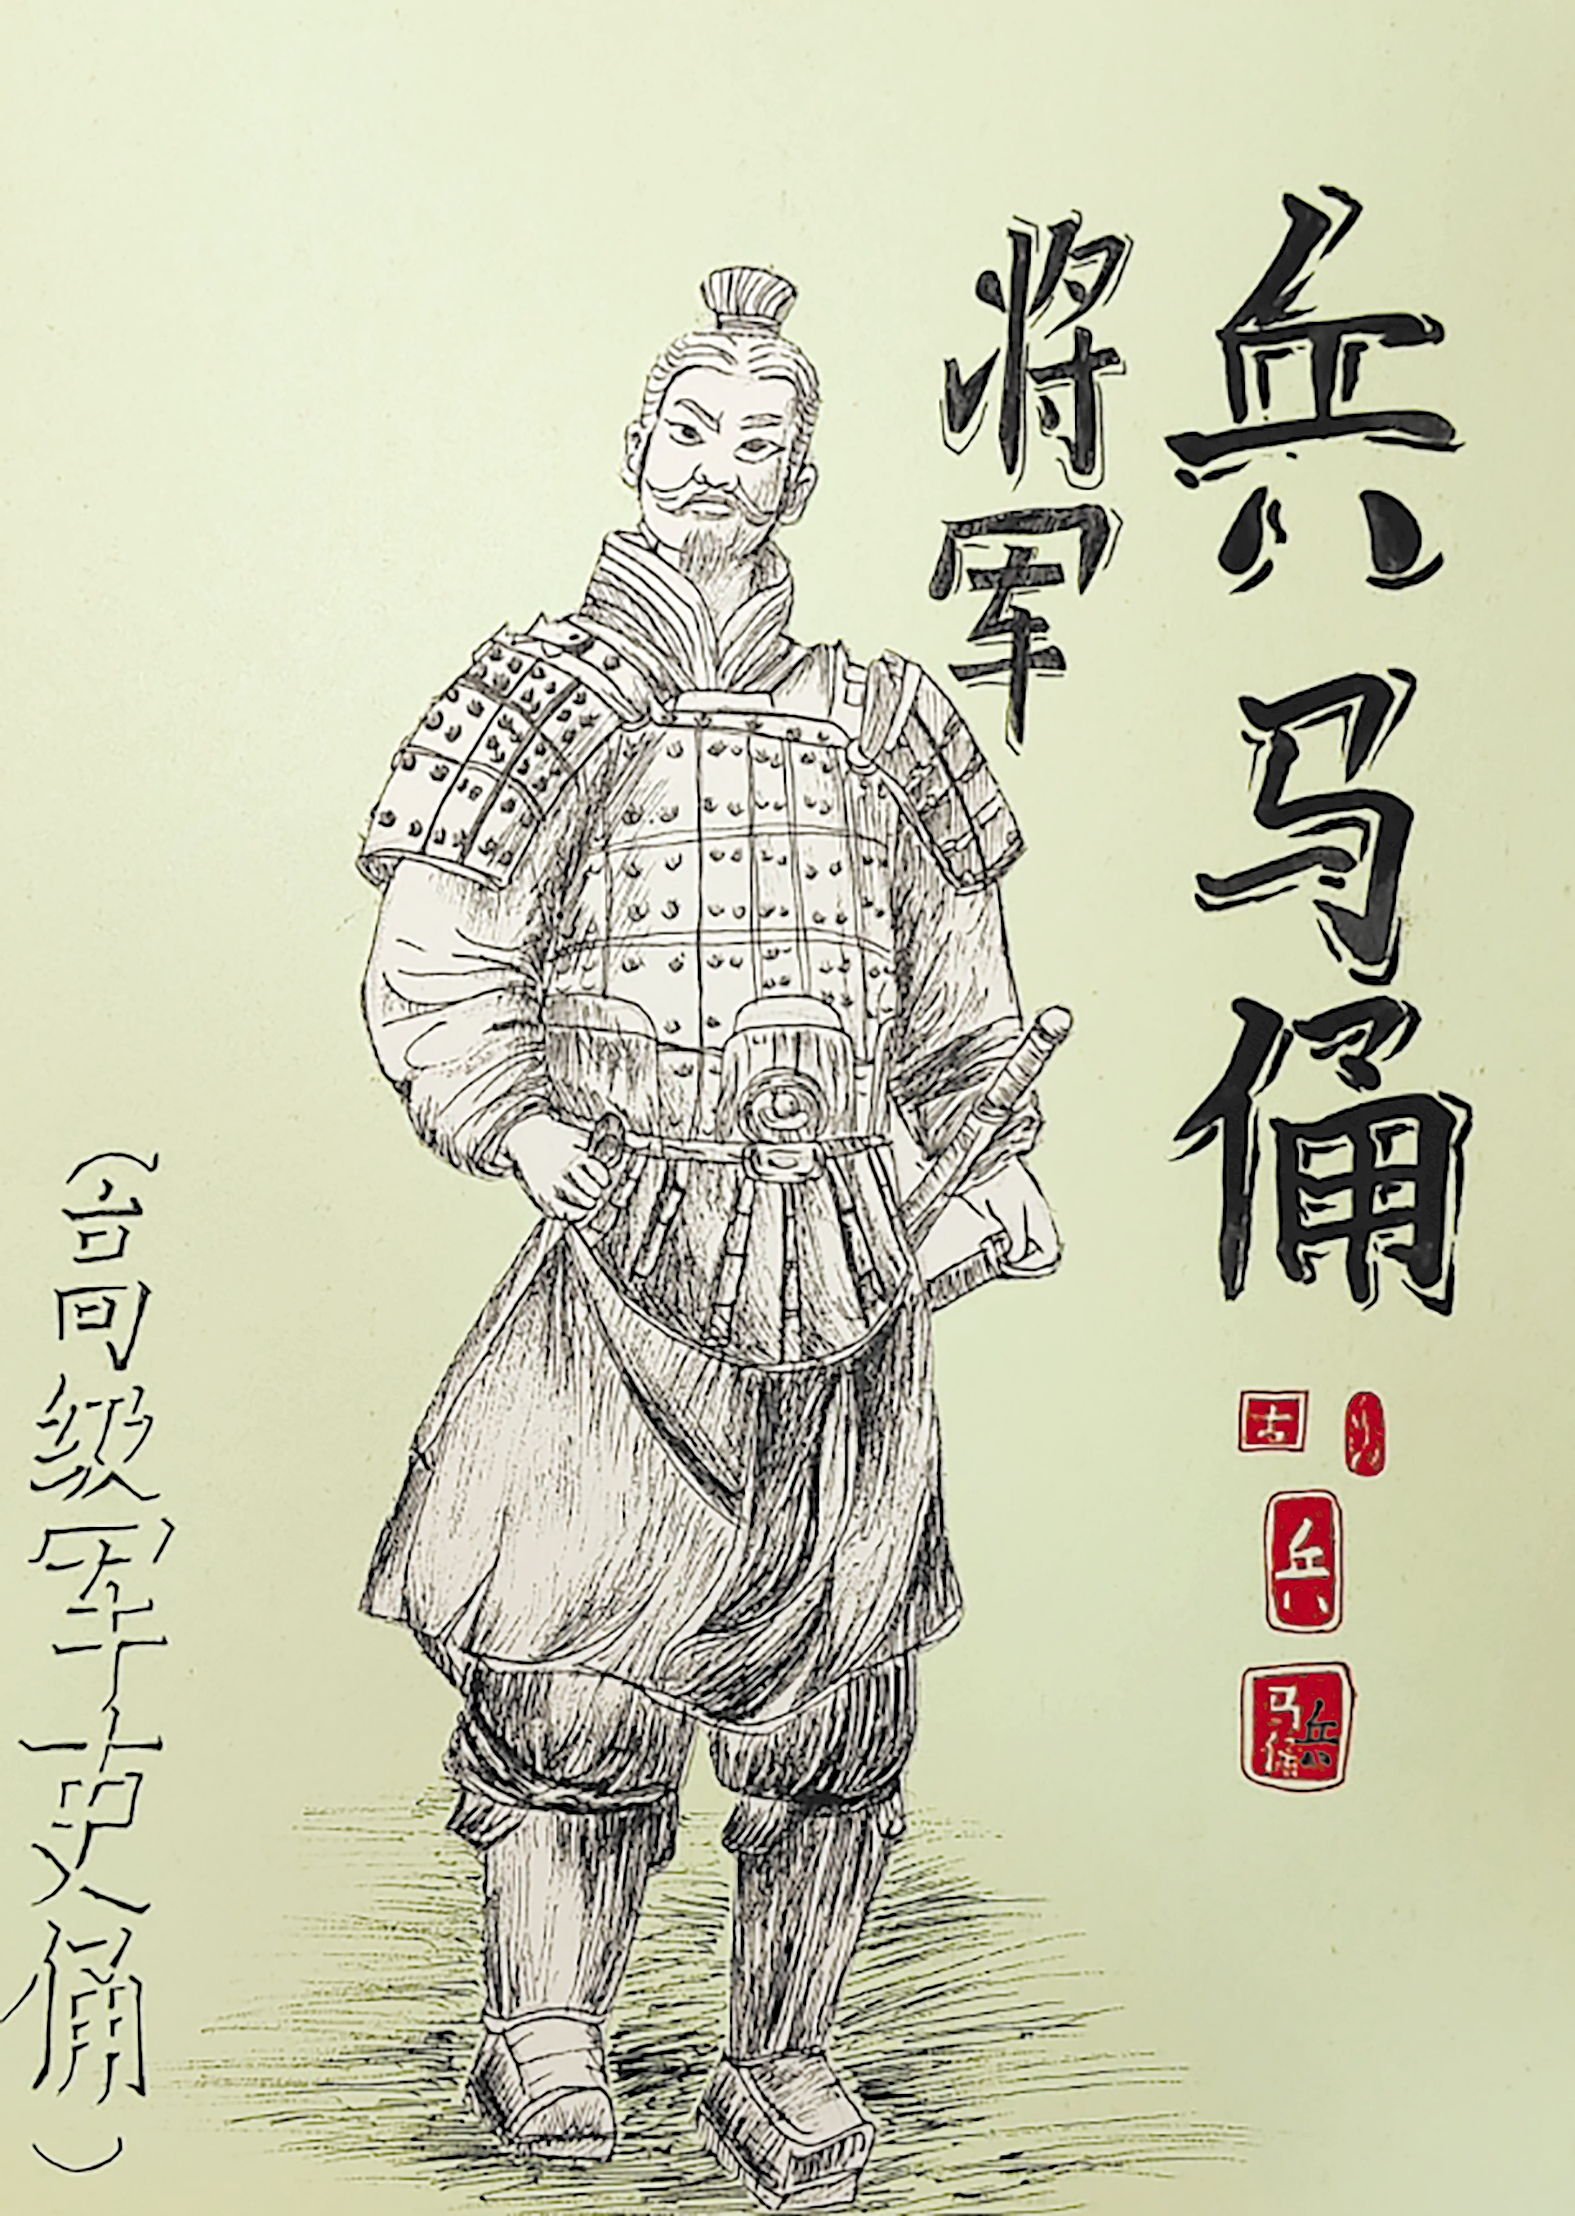 兵马俑
将军
(高级军吏俑)
士
兵
兵
马俑